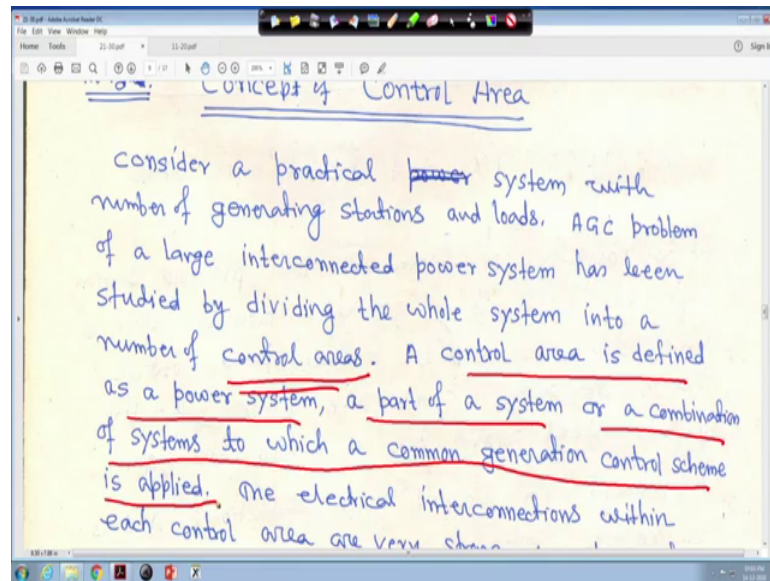 21-30.pdf - Adobe Acrobat Reader DC
File Edit View Window Help
Home Tools 21-30.pdf × 11-20.pdf Sign I
Concept of Control Area
Consider a practical power system with
number of generating stations and loads. AGC problem
of a large interconnected power system has been
studied by dividing the whole system into a
number of control areas. A control area is defined
as a power system, a part of a system or a combination
of systems to which a common generation control scheme
is applied. The electrical interconnections within
each control area are very